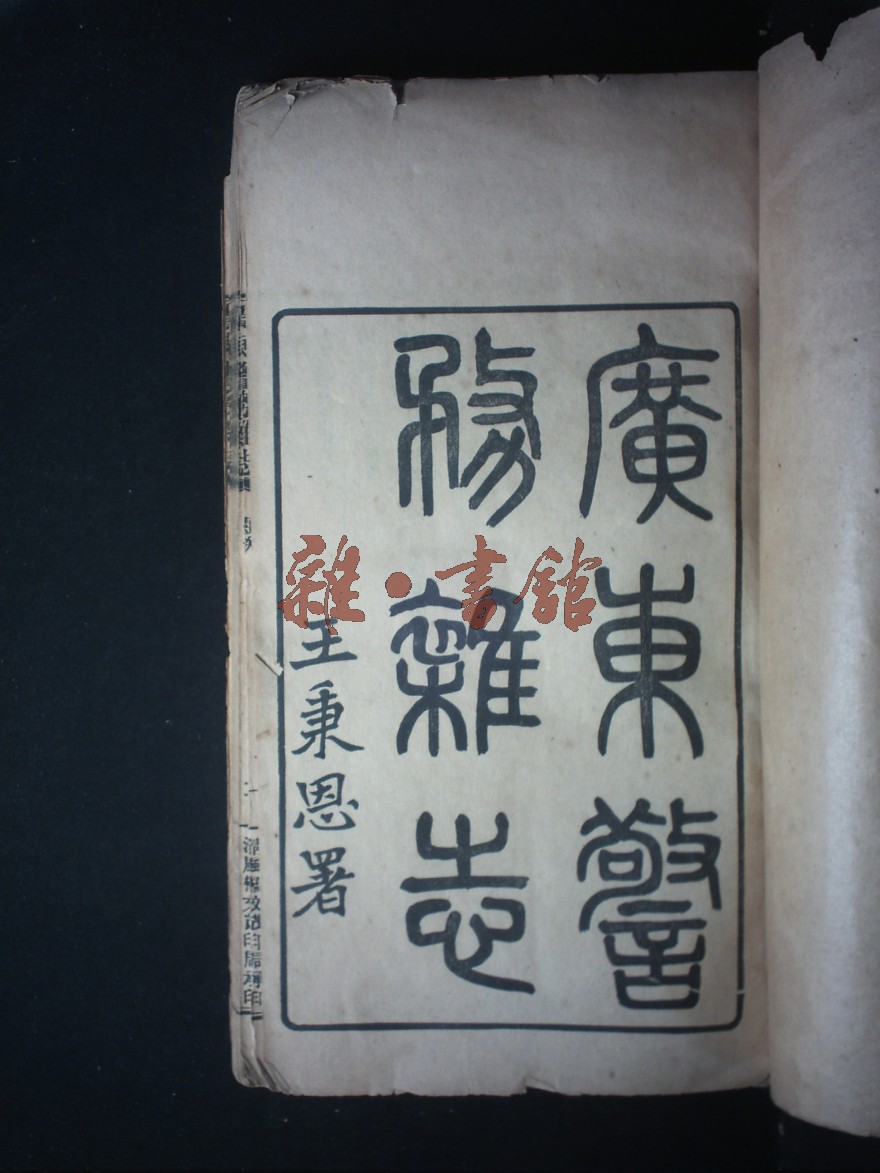 廣東警
務雜志
王秉恩署
雜·書館